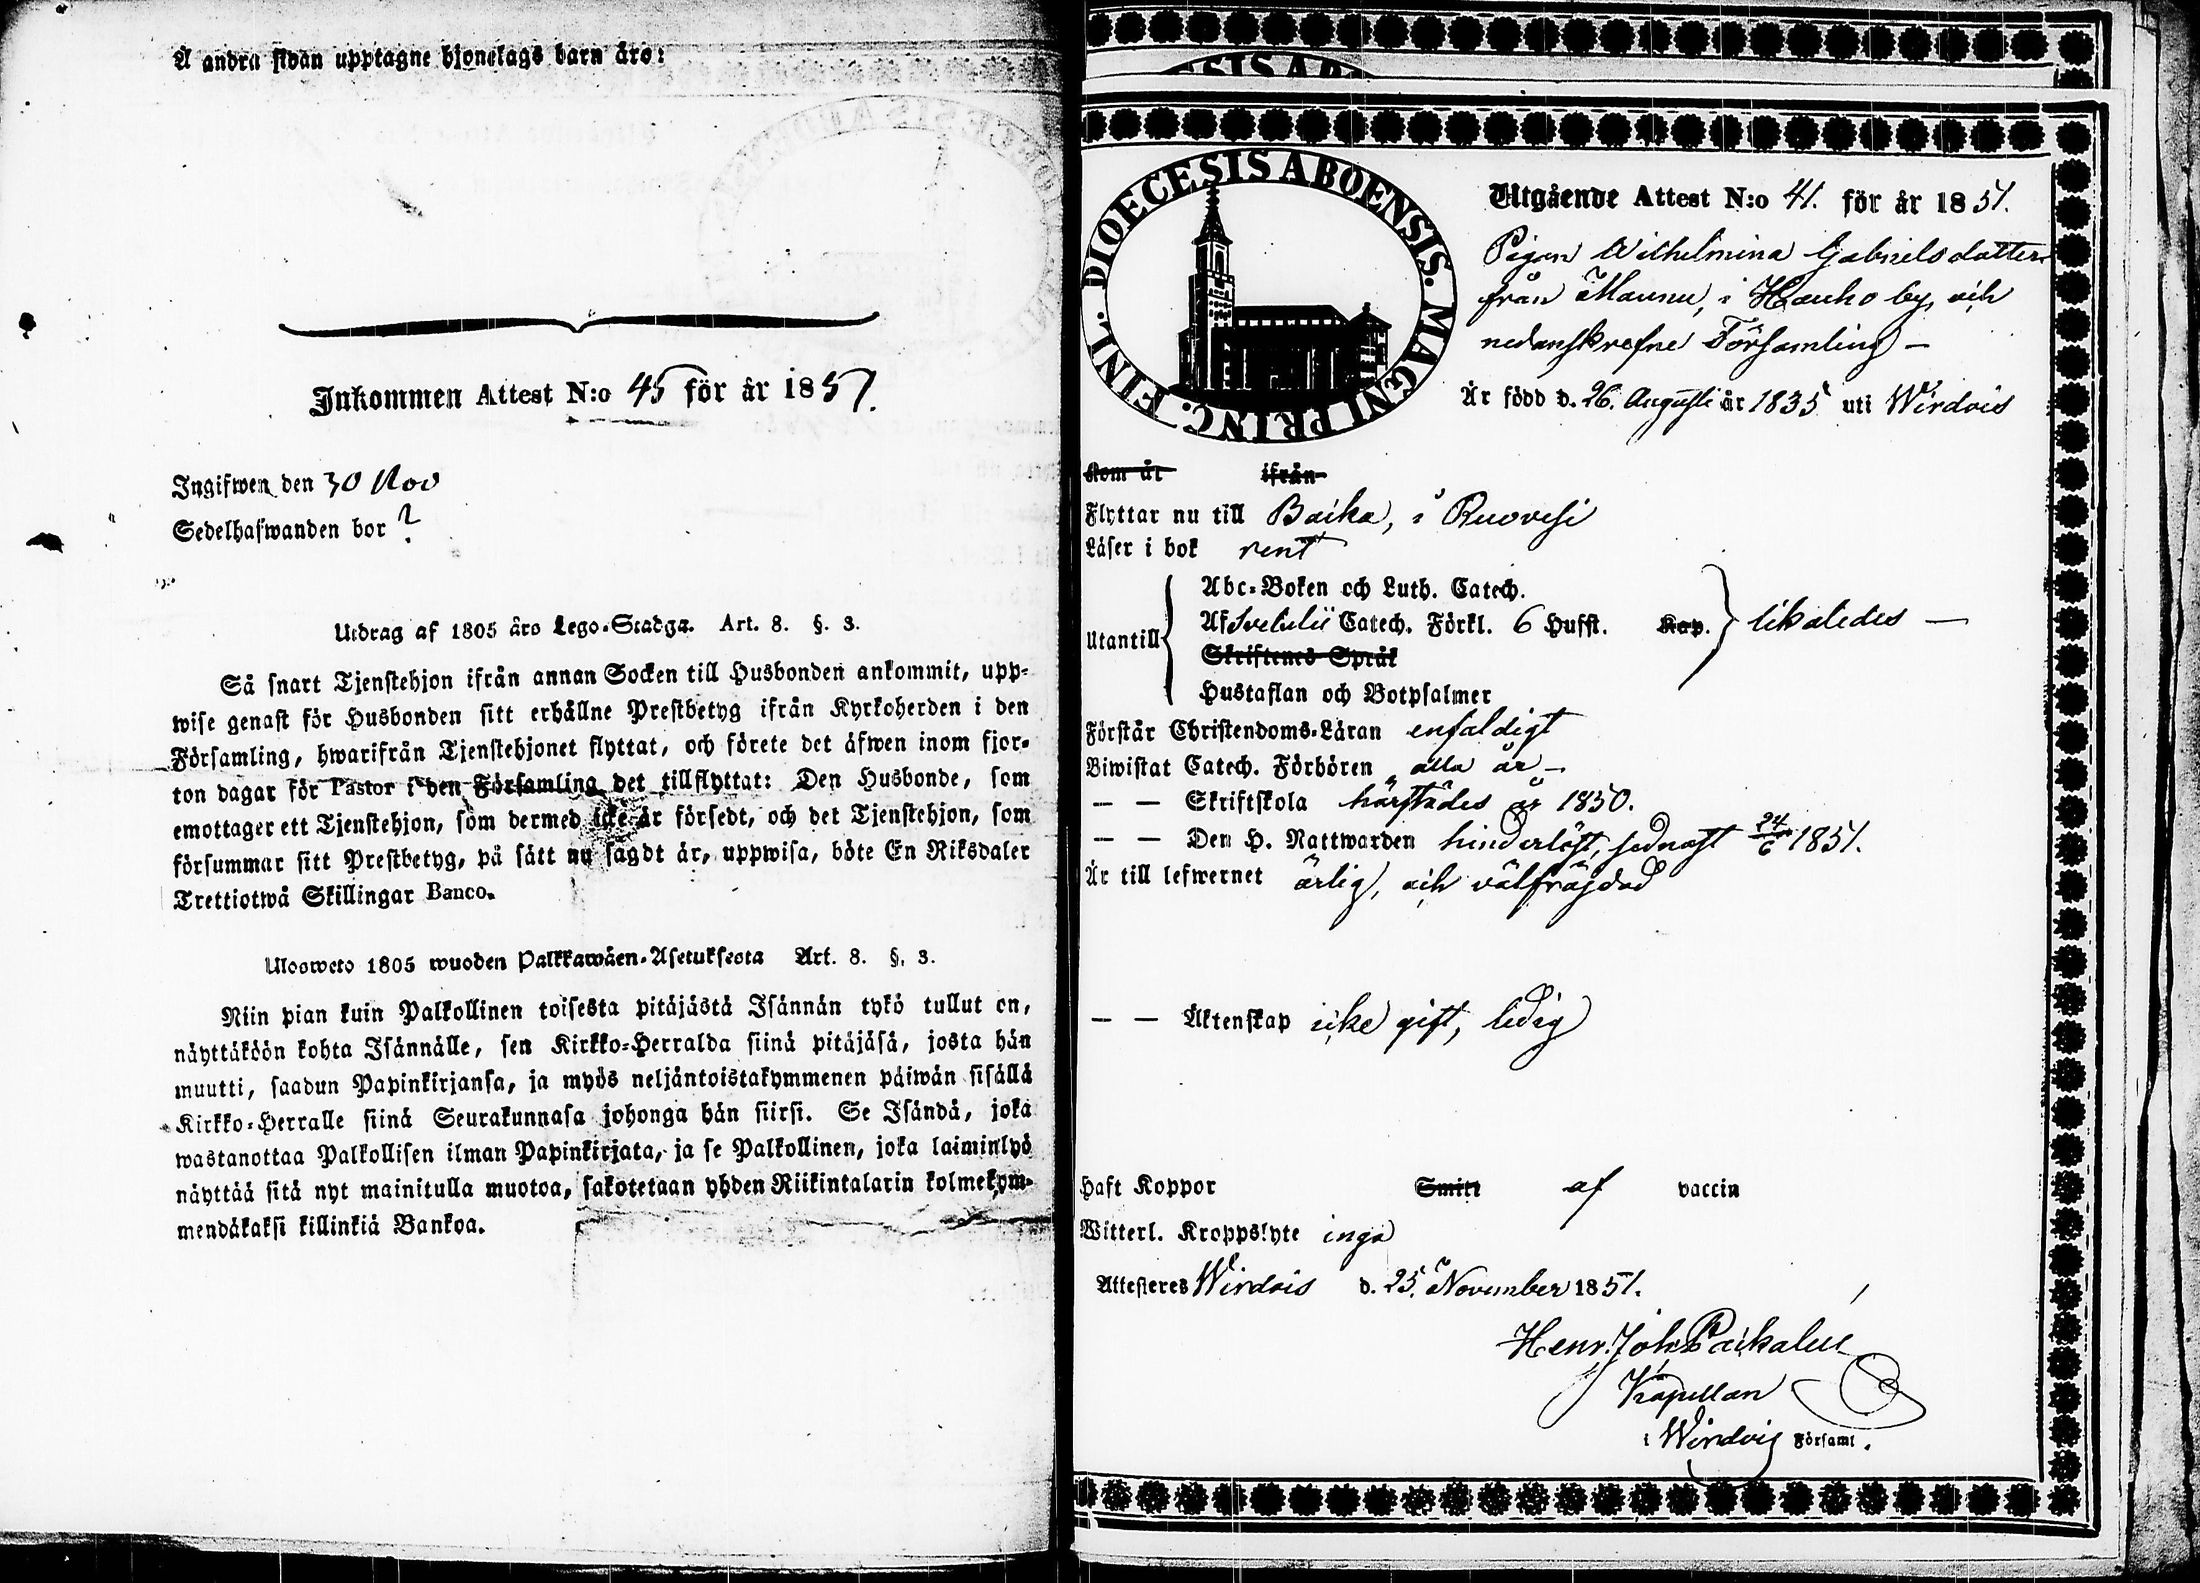 A andra sidan upptagne hjonelags barn äro:
Inkommen Attest N:o 45 för år 1851.
Ingifwen den 30 Nov
Sedelhafwanden bor ?
Utdrag af 1805 års Lego-Stadga. Art. 8. §. 3.
Så snart Tjenstehjon ifrån annan Socken till Husbonden ankommit, upp-
wise genast för Husbonden sitt erhållne Prestbetyg ifrån Kyrkoherden i den
Församling, hwarifrån Tjenstehjonet flyttat, och förete det äfwen inom fjor-
ton dagar för Pastor i den Församling det tillflyttat: Den Husbonde, som
emottager ett Tjenstehjon, som dermed icke är försedt, och det Tjenstehjon, som
försummar sitt Prestbetyg, på sätt nu sagdt är, uppwisa, böte En Riksdaler
Trettiotwå Skillingar Banco.
Ulosweto 1805 wuoden Palkkawäen-Asetuksesta Art. 8. §. 3.
Niin pian kuin Palkollinen toisesta pitäjästä Isännän tykö tullut on,
näyttäköön kohta Isännälle, sen Kirkko-Herralda siinä pitäjäsä, josta hän
muutti, saadun Papinkirjansa, ja myös neljäntoistakymmenen päiwän sisällä
Kirkko-Herralle siinä Seurakunnasa johonga hän siirsi. Se Isändä, joka
wastanottaa Palkollisen ilman Papinkirjata, ja se Palkollinen, joka laiminlyö
näyttää sitä nyt mainitulla muotoa, sakotetaan yhden Riikintalarin kolmekym-
mendäkaksi killinkiä Bankoa.
DIOECESIS ABOENSIS. MAGNI PRINC. FINL.
Utgående Attest N:o 41. för år 1851.
Pigan Wilhelmina Gabrielsdotter
från Maunu, i Hauho by, och
nedanskrefne Församling –
Är född d. 26. Augusti år 1835 uti Wirdois
Kom år ifrån
Flyttar nu till Baika, i Ruovesi
Läser i bok rent
Utantill
Abc-Boken och Luth. Catech.
Af Svebilii Catech. Förkl. 6 Hufst. Kap. likaledes –
Skriftenes Språk
Hustaflan och Botpsalmer
Förstår Christendoms-Läran enfaldigt
Biwistat Catech. Förhören alla år –
– – Skriftskola härstädes år 1850.
– – Den H. Nattwarden hinderlöst, sednast 24/6 1851.
Är till lefwernet ärlig, och välfräjdad
– – Äktenskap icke gift, ledig
Haft Koppor Smitt af vaccin
Witterl. Kroppslyte inga
Attesteres Wirdois d. 25. November 1851.
Henr. Joh.
Kapellan
i Wirdois Församl.